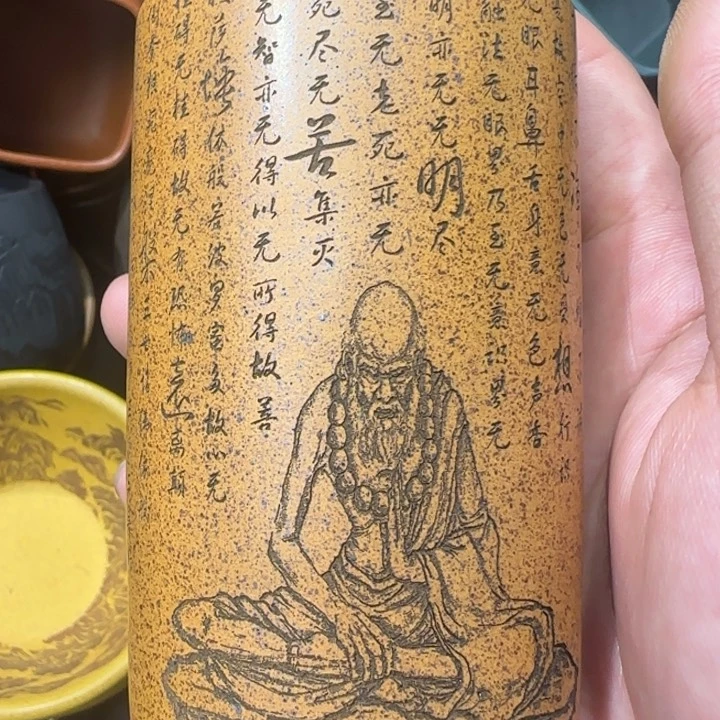 故空中无色无受想行识
无眼耳鼻舌身意无色声香
触法无眼界乃至无意识界无
明亦无无明尽
至无老死亦无
死尽无苦集灭
无智亦无得以无所得故菩
萨埵依般若波罗蜜多故心无
挂碍无挂碍故无有恐怖远离颠
槃三世诸佛